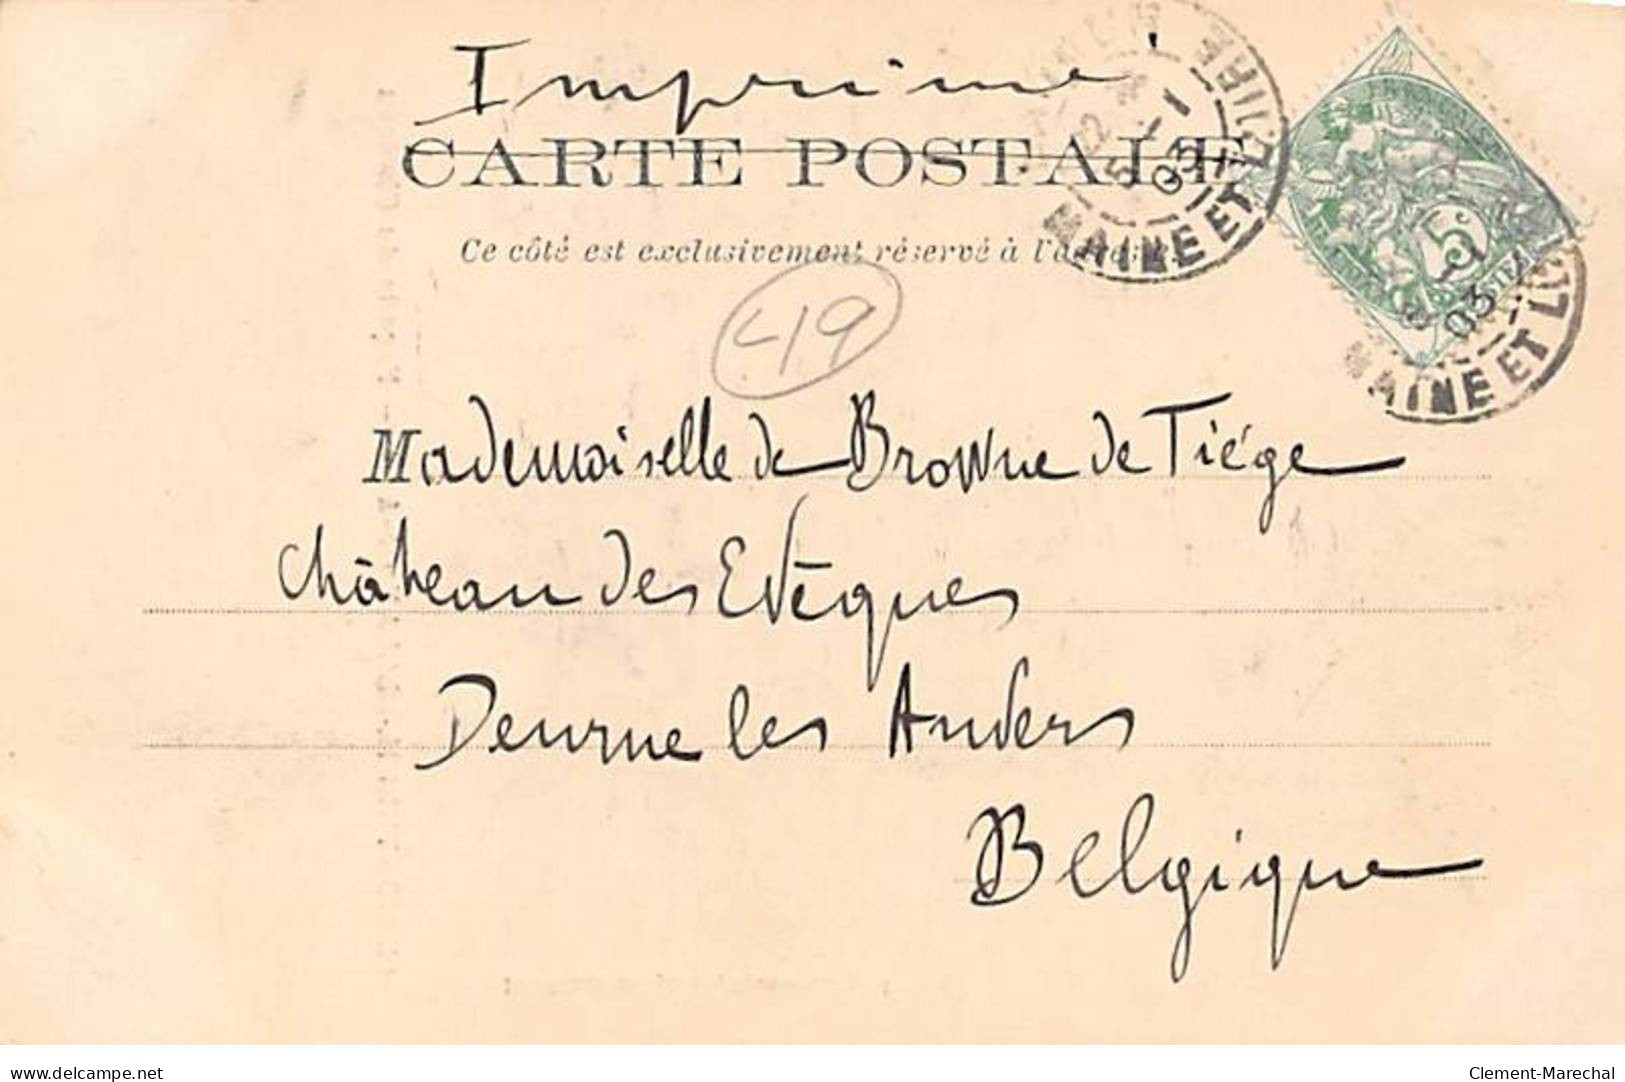 Imprimé
CARTE POSTALE
Ce côté est exclusivement réservé à l'adresse.
MAINE ET LOIRE
03
5c
MAINE ET
03
49
Mademoiselle de Browne de Tiége
Château des Evêques
Deurne les Anvers
Belgique
www.delcampe.net
Clement-Marechal